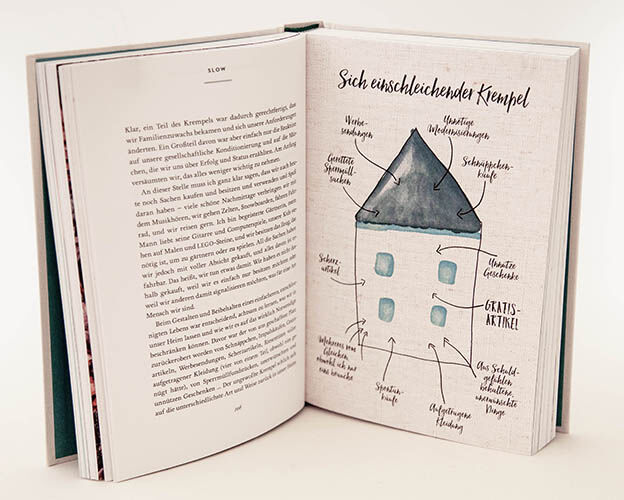 SLOW
Klar, ein Teil des Krempels war dadurch gerechtfertigt, dass
wir Familienzuwachs bekamen und sich unsere Anforderungen
änderten. Ein Großteil davon war aber einfach nur die Reaktion
auf unsere gesellschaftliche Konditionierung und auf die
chen, die wir uns über Erfolg und Status erzählten. Am Anfang
versäumten wir, das alles weniger wichtig zu nehmen.
An dieser Stelle muss ich ganz klar sagen, dass wir auch heu-
te noch Sachen kaufen und besitzen und verwenden und Spaß
daran haben – viele schöne Nachmittage verbringen wir mit
dem Musikhören, wir gehen Zelten, Snowboarden, fahren Fahr-
rad, und wir reisen gern. Ich bin begeisterte Gärtnerin, mein
Mann liebt seine Gitarre und Computerspiele, unsere Kids
en auf Malen und LEGO-Steine, und wir besitzen das Zeug, das
nötig ist, um zu gärtnern oder zu spielen. All die Sachen haben
wir jedoch mit voller Absicht gekauft, und alles davon ist
Das heißt, wir tun etwas damit. Wir haben es nicht
halb gekauft, weil wir es einfach nur besitzen möchten oder
weil wir anderen damit signalisieren möchten, was für eine Art
Mensch wir sind.
Beim Gestalten und Beibehalten eines einfacheren,
nigten Lebens war entscheidend, achtsam zu lernen, was wir in
unser Heim lassen und wie wir es auf das wirklich Notwendige
beschränken können. Davor war der von uns geschaffene Platz
zurückerobert worden von Schnäppchen, Impulskäufen, Gratis-
artikeln, Werbesendungen, Scherzartikeln,
aufgetragener Kleidung (vier von einem Teil, obwohl eins
nügt hätte), von Sperrmüllfundstücken, unerwünschten und
unnützen Geschenken – Der ungewollte Krempel schlich sich
auf die unterschiedlichste Art und Weise zurück in unser Heim
Sich einschleichender Krempel
Werbe-
sendungen
Unnötige
Modernisierungen
Gerettete
Sperrmüll-
sachen
Schnäppchen-
käufe
Scherz-
artikel
Unnütze
Geschenke
GRATIS-
ARTIKEL
Mehreres vom
Gleichen,
obwohl ich nur
eins brauche
Spontan-
käufe
Aufgetragene
Kleidung
Aus Schuld-
gefühlen
behaltene,
unerwünschte
Dinge